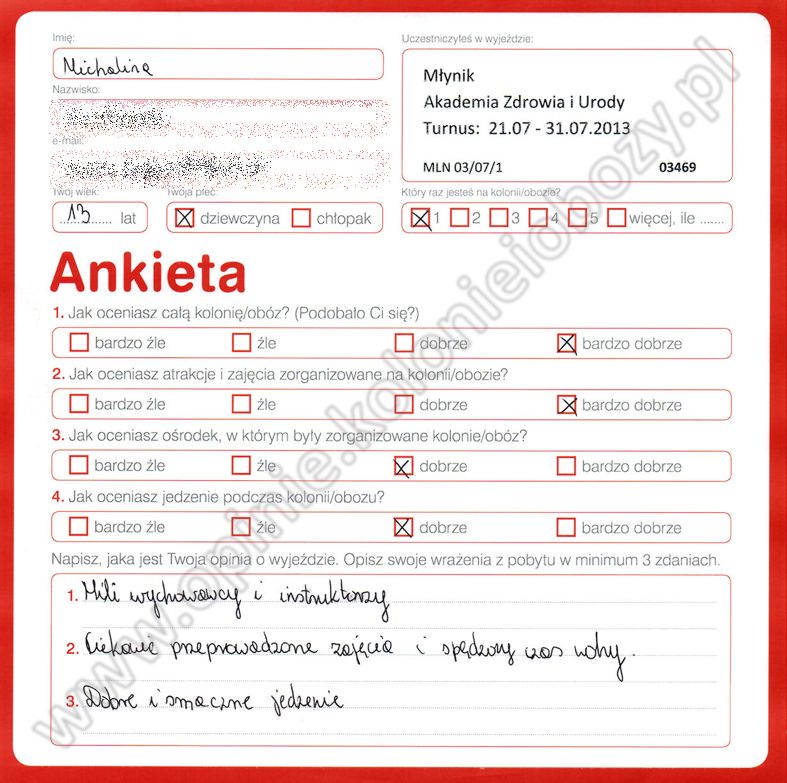 Imię:
Michalina
Nazwisko:
e-mail:
Twój wiek:
13 lat
Twoja płeć:
dziewczyna chłopak
Uczestniczyłeś w wyjeździe:
Młynik
Akademia Zdrowia i Urody
Turnus: 21.07 - 31.07.2013
MLN 03/07/1 03469
Który raz jesteś na kolonii/obozie?
1 2 3 4 5 więcej, ile .......
Ankieta
1. Jak oceniasz całą kolonię/obóz? (Podobało Ci się?)
bardzo źle źle dobrze bardzo dobrze
2. Jak oceniasz atrakcje i zajęcia zorganizowane na kolonii/obozie?
bardzo źle źle dobrze bardzo dobrze
3. Jak oceniasz ośrodek, w którym były zorganizowane kolonie/obóz?
bardzo źle źle dobrze bardzo dobrze
4. Jak oceniasz jedzenie podczas kolonii/obozu?
bardzo źle źle dobrze bardzo dobrze
Napisz, jaka jest Twoja opinia o wyjeździe. Opisz swoje wrażenia z pobytu w minimum 3 zdaniach.
1. Mili wychowawcy i instruktorzy
2. Ciekawie przeprowadzone zajęcia i spędzony czas wolny.
3. Dobre i smaczne jedzenie
www.opinie.kolonieiobozy.pl